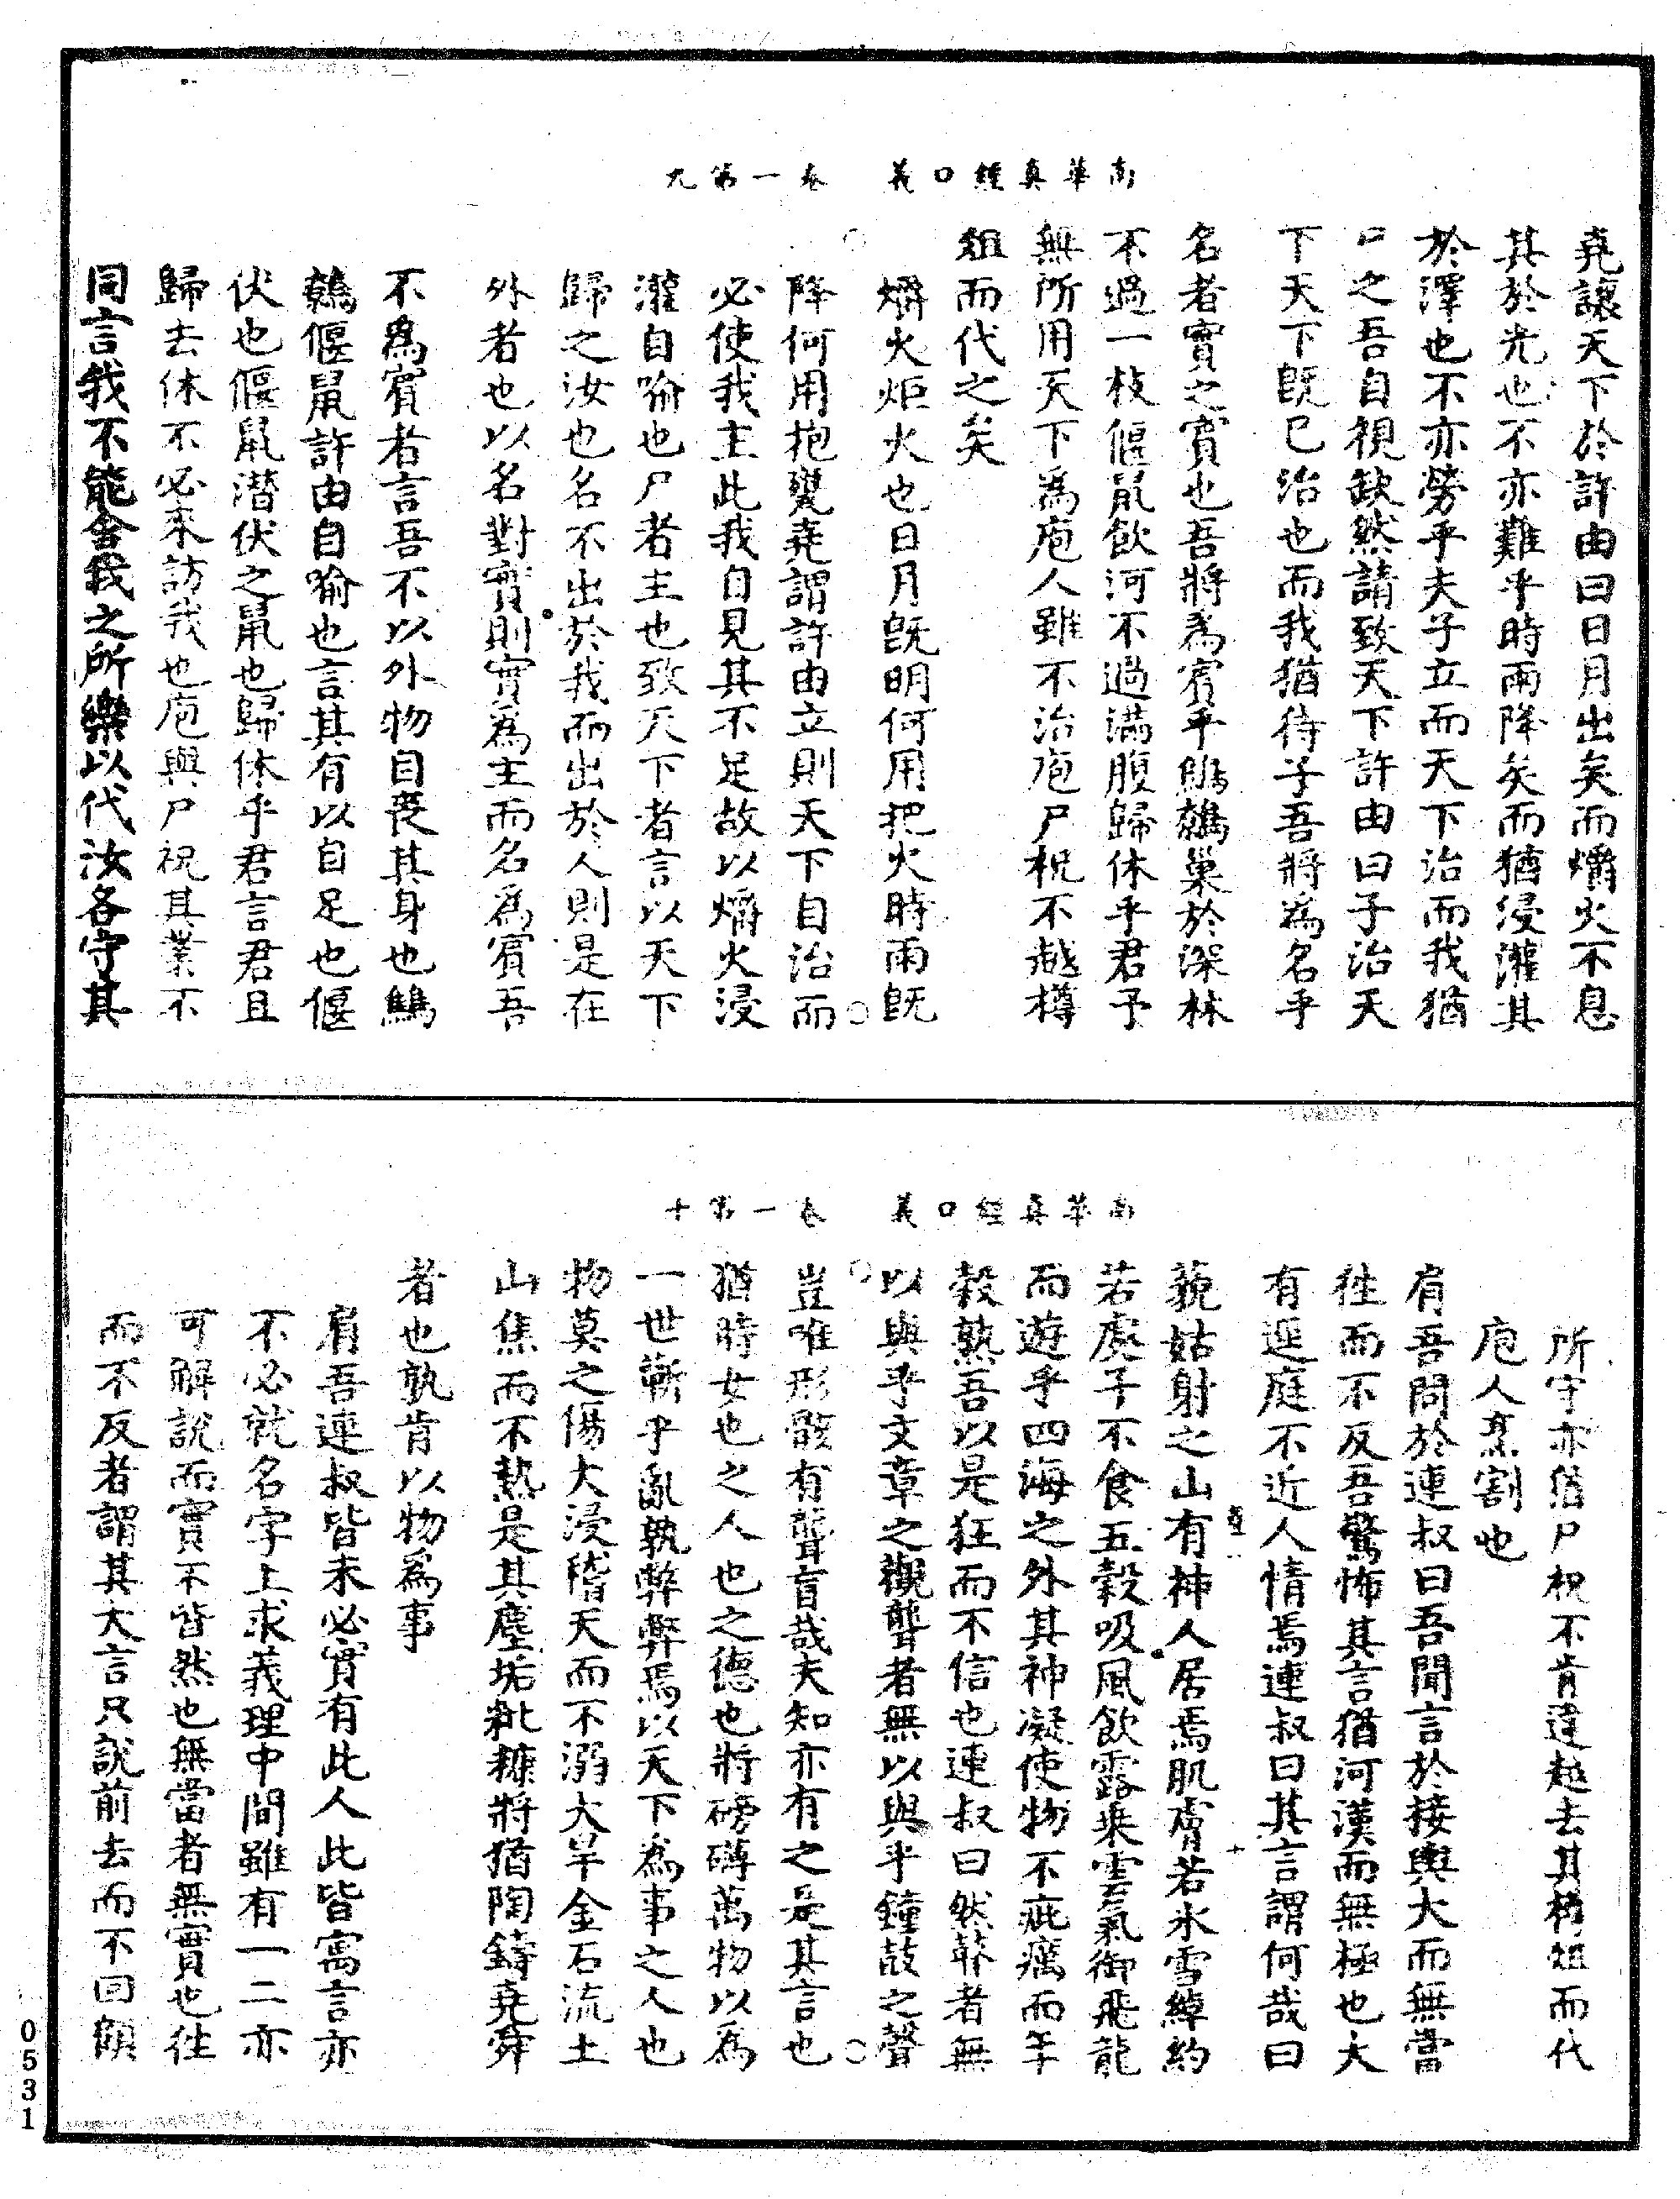 南華真經口義　卷一第九
堯讓天下於許由曰日月出矣而爝火不息
其於光也不亦難乎時雨降矣而猶浸灌其
於澤也不亦勞乎夫子立而天下治而我猶
尸之吾自視缺然請致天下許由曰子治天
下天下既已治也而我猶待子吾將為名乎
名者實之賓也吾將為賓乎鷦鷯巢於深林
不過一枝偃鼠飲河不過滿腹歸休乎君予
無所用天下為庖人雖不治庖尸祝不越樽
俎而代之矣
爝火炬火也日月既明何用把火時雨既
降何用抱甕堯謂許由立則天下自治而
必使我主此我自見其不足故以爝火浸
灌自喻也尸者主也致天下者言以天下
歸之汝也名不出於我而出於人則是在
外者也以名對實則實為主而名為賓吾
不為賓者言吾不以外物自喪其身也鷦
鷯偃鼠許由自喻也言其有以自足也偃
伏也偃鼠潛伏之鼠也歸休乎君言君且
歸去休不必來訪我也庖與尸祝其業不
同言我不能舍我之所樂以代汝各守其
南華真經口義　卷一第十
所守亦猶尸祝不肯違越去其樽俎而代
庖人烹割也
肩吾問於連叔曰吾聞言於接輿大而無當
往而不反吾驚怖其言猶河漢而無極也大
有逕庭不近人情焉連叔曰其言謂何哉曰
藐姑射之山有神人居焉肌膚若冰雪綽約
若處子不食五穀吸風飲露乘雲氣御飛龍
而遊乎四海之外其神凝使物不疵癘而年
穀熟吾以是狂而不信也連叔曰然瞽者無
以與乎文章之觀聾者無以與乎鐘鼓之聲
豈唯形骸有聾盲哉夫知亦有之是其言也
猶時女也之人也之德也將磅礴萬物以為
一世蘄乎亂孰弊弊焉以天下為事之人也
物莫之傷大浸稽天而不溺大旱金石流土
山焦而不熱是其塵垢粃糠將猶陶鑄堯舜
者也孰肯以物為事
肩吾連叔皆未必實有此人此皆寓言亦
不必就名字上求義理中間雖有一二亦
可解說而實不皆然也無當者無實也往
而不反者謂其大言只說前去而不回顧
0531